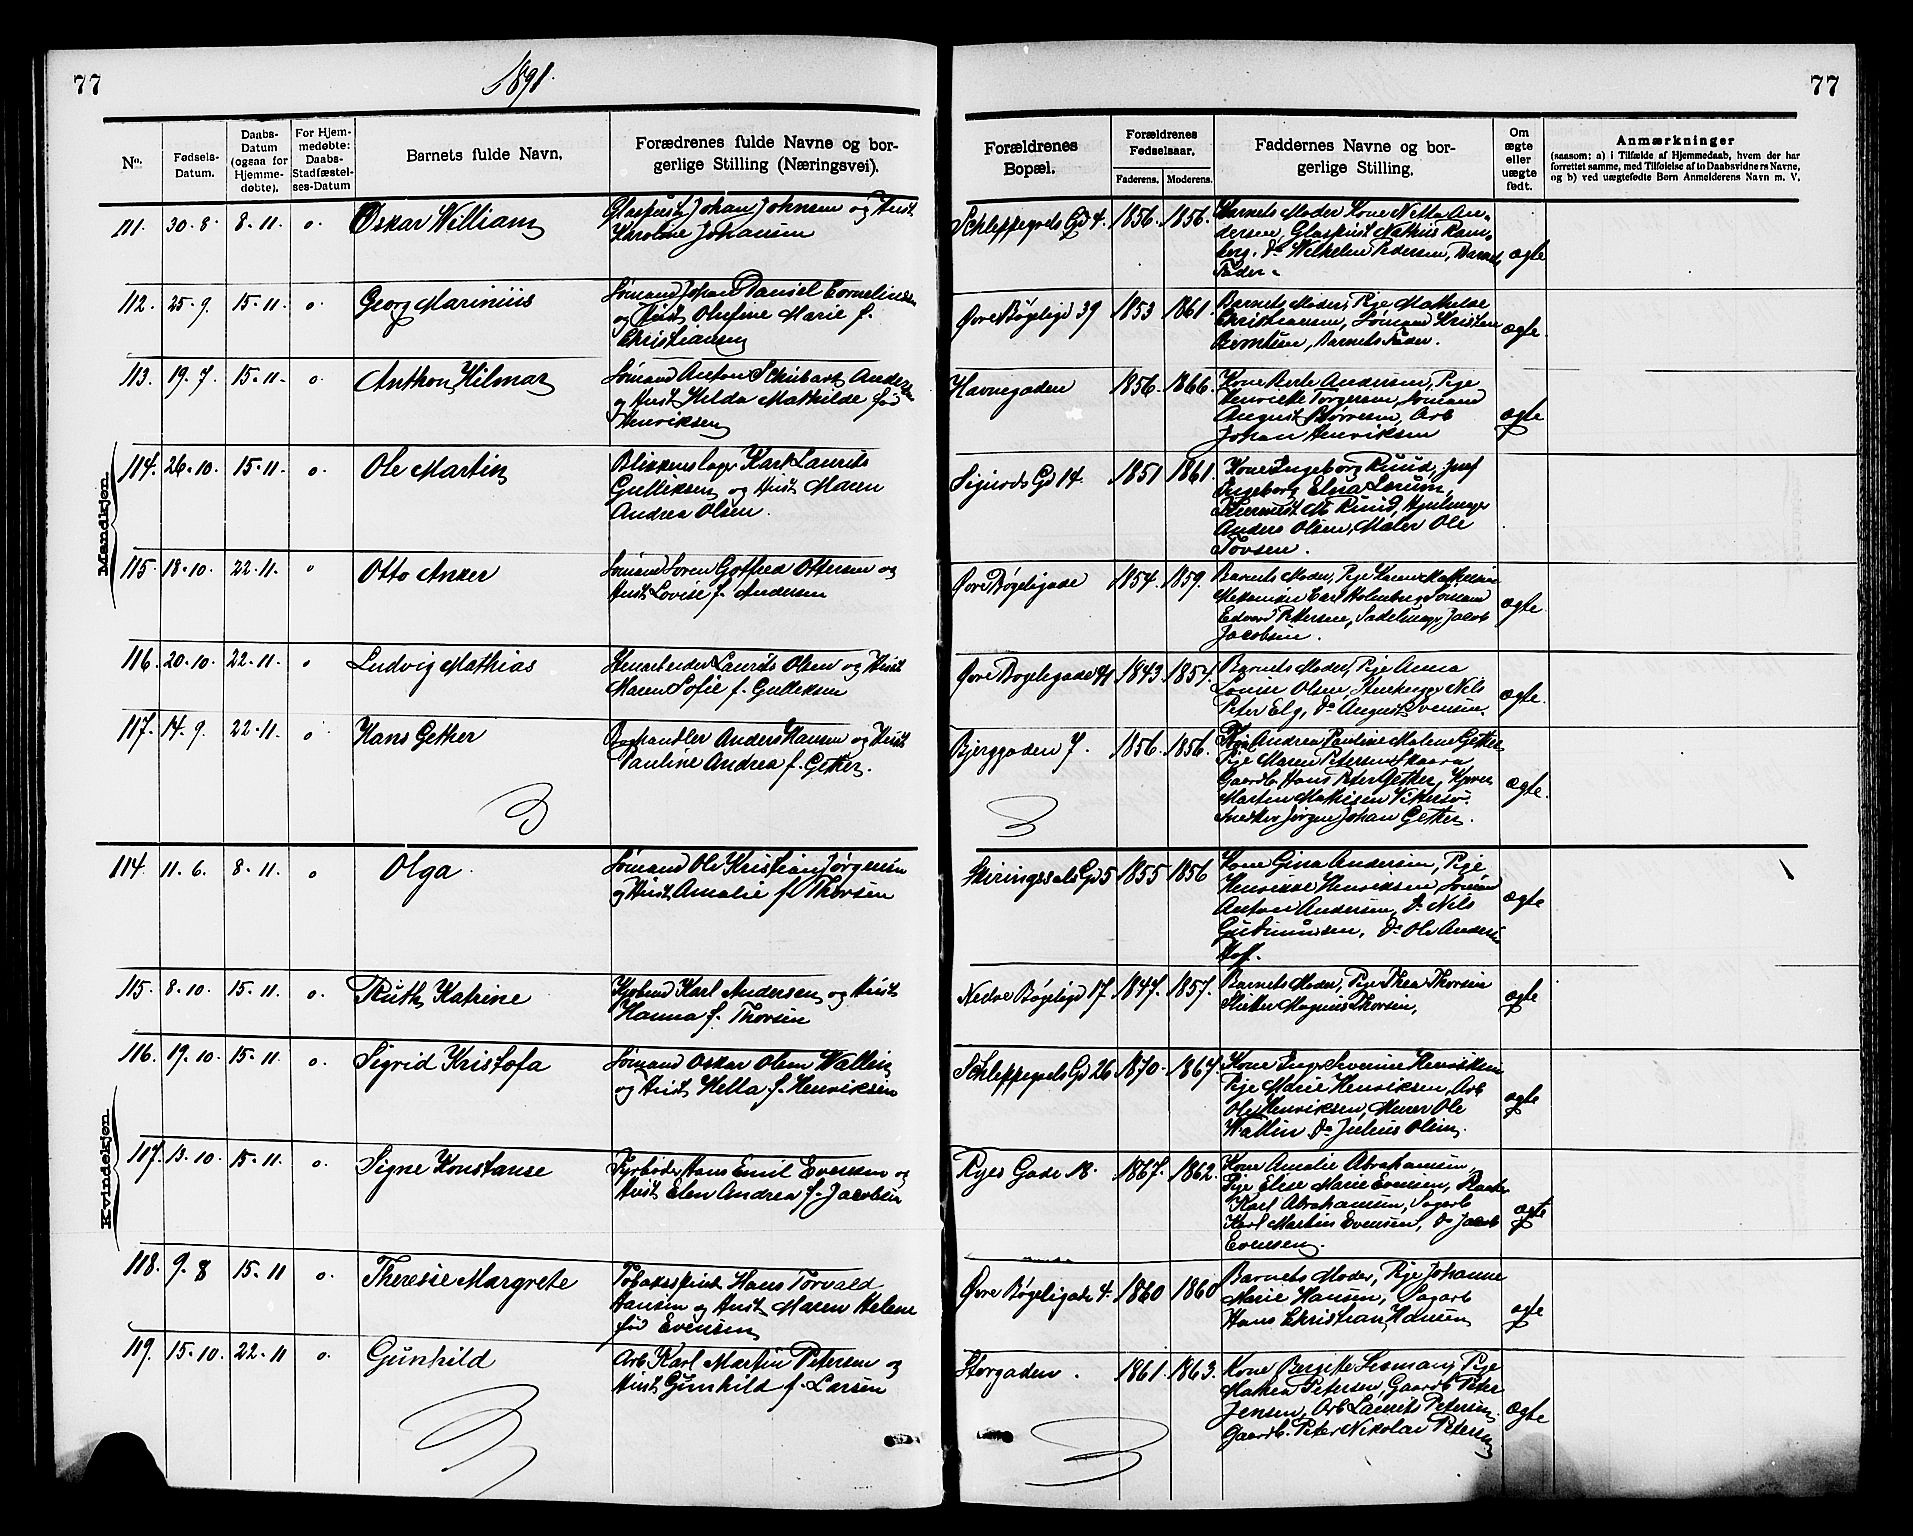 77
1891.
77
No.
Fødsels-
Datum.
Daabs-
Datum
(ogsaa for
Hjemme-
døbte).
For Hjem-
medøbte:
Daabs-
Stadfæstel-
ses-Datum
Barnets fulde Navn.
Forædrenes fulde Navne og bor-
gerlige Stilling (Næringsvei).
Forældrenes
Bopæl.
Forældrenes
Fødselsaar.
Faderens.
Moderens.
Faddernes Navne og bor-
gerlige Stilling.
Om
ægte
eller
uægte
født.
Anmærkninger
(saasom: a) i Tilfælde af Hjemmedaab, hvem der har
forrettet samme, med Tilføielse af to Daabsvidners Navne,
og b) ved uægtefødte Børn Anmelderens Navn m. V.
Mandkjøn.
111. 30-8 8-11. o Oskar William
Glaspust Johan Johnsen og Hust
Karoline Johansen
Schleppegrels Gd 4. 1856. 1856.
Barnets Moder Kone Netta An-
dersen, Glaspust Mathias Ram-
berg, do Wilhelm Pedersen, Barnets
Fader.
ægte
112. 25-9. 15-11. o Georg Marinius
Sømand Johan Daniel Corneliussen
og Hust Olufine Marie f.
Christiansen
Øvre Bøgeligd 39 1853 1861.
Barnets Moder, Pige Mathilde
Christiansen, Sømand Kristen
Berntsen, Barnets Fader.
ægte
113. 19-7. 15-11. o Anthon Hilmar
Sømand Anton Schubart Andersen
og Hust Helda Mathilde fød
Henriksen
Havnegaden 1856. 1866.
Kone Berte Andersen, Pige
Henriette Torgersen, Sømand
August Børresen, Arb
Johan Henriksen
ægte
114. 26-10. 15-11. o Ole Martin
Blikkenslager Karl Laurits
Gulliksen og Hust Maren
Andrea Olsen.
Sigurds Gd 14. 1851 1861.
Kone Ingeborg Ruud, Jmf
Ingeborg Elisa
M Ruud, Hjulmager
Anders Olsen, Maler Ole
Tovsen.
115. 18-10. 22-11. o Otto Anker
Sømand Soren Gothfred Ottersen og
Hust Lovise f. Andersen
Øvre Bøgeligade 1854. 1859.
Barnets Moder, Pige Karen Mathisen
Mekaniker Carl Holmberg Sømand
Edvard Pettersen, Sadelmager Jacob
Jacobsen.
ægte.
116. 20-10. 22-11. o Ludvig Mathias
Stenarbeider Laurits Olsen og Hust
Maren Sofie f. Gulliksen
Øvre Bøgeligade 41 1843. 1854.
Barnets Moder, Pige Anna
Louise Olsen, Stenhugger Nils
Peter Elg, do August Svensen.
ægte.
117. 14-9. 22-11. o Hans Gether
Boghandler Anders Hansen og Hust
Pauline Andrea f. Gether.
Bjerggaden 7. 1856. 1856.
Pige Andrea Pauline Malene Gether
Pige Maren Petersen Skaara
Gaardb Hans Peter Gether, Kjører
Martin Mathisen Vittersø.
Snedker Jørgen Johan Gether.
ægte.
Kvindekjøn.
114. 11-6. 8-11. o Olga
Sømand Ole Kristian Jørgensen
og Hust Amalie f Thorsen
Skiringssals Gd 5 1855 1856
Kone Gina Andersen, Pige
Henrikke Henriksen, Sømand
Anton Andersen, do Nils
Gudmunsen, do Ole Anders
Hoff.
ægte
115. 8-10. 15-11. o. Ruth Katrine
Karl Andersen og Hust
Hanna f. Thorsen
Nedre Bøgeligd 17 1847. 1857.
Barnets Moder, Pige Thea Thorsen
Magnus Thorsen,
ægte
116. 19-10. 15-11. o. Sigrid Kristofa
Sømand Oskar Olsen Wallin
og Hust Hella f. Henriksen
Schleppegrels Gd 26 1870. 1867.
Kone Inger Severine Henriksen
Pige Marie Henriksen, Arb
Ole Henriksen, Murer Ole
Wallin do Julius Olsen.
ægte
117. 13-10. 15-11. o. Signe Konstanse
Fyrbøder Hans Emil Evensen og
Hust Elen Andrea f. Jacobsen
Ryes Gade 18. 1867. 1862.
Kone Amalie Abrahamsen,
Pige Elise Marie Evensen,
Karl Abrahamsen, Sagarb
Karl Martin Evensen, do Jacob
Evensen.
ægte
118. 9-8 15-11 o. Theresie Margrete
Tobaksspind Hans Torvald
Hansen og Hust Maren Helene
fød Evensen
Øvre Bøgeligade 4. 1860 1860
Barnets Moder, Pige Johanne
Marie Hansen, Sagarb
Hans Christian Hansen
ægte
119. 15-10. 22-11 o. Gunhild
Arb Karl Martin Petersen og
Hust Gunhild f. Larsen
Storgaden. 1861. 1863.
Kone Bergitte Lieman, Pige
Mathea Petersen, Gaardb Peter
Jensen, Arb Laurits Petersen
Gaardb. Peter Nikolai Petersen
ægte